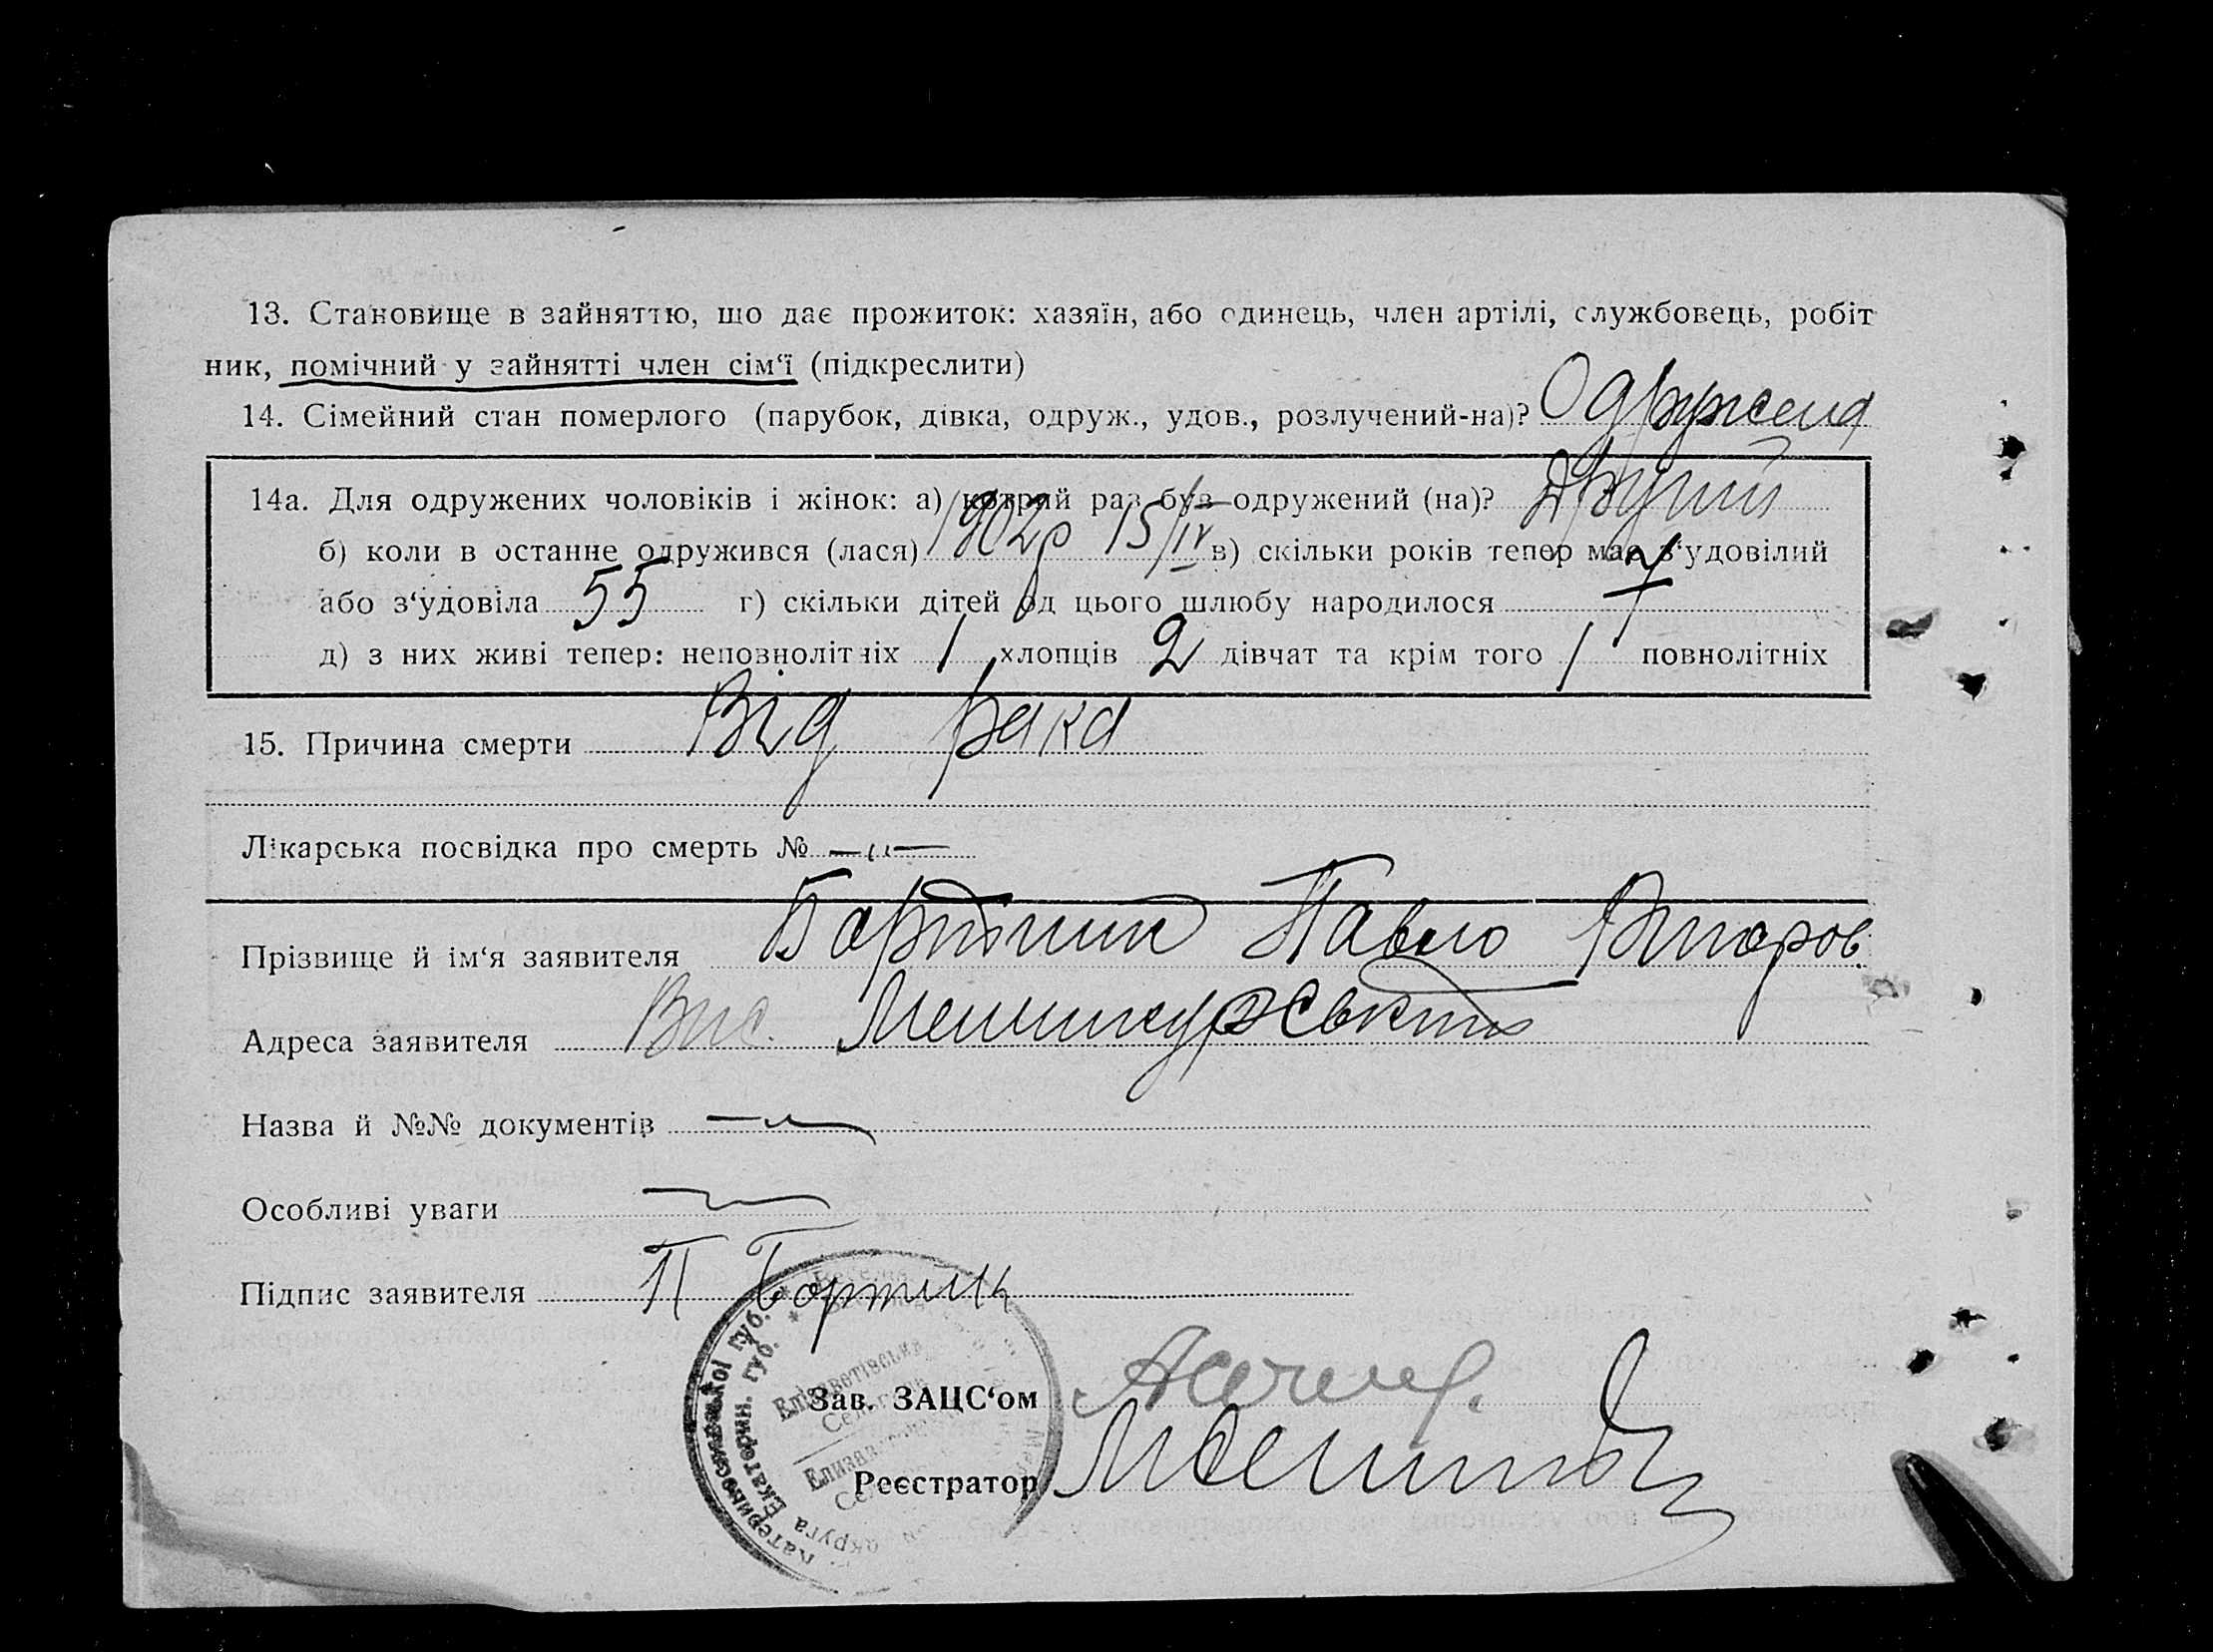 13. Становище в зайняттю, що дає прожиток: хазяїн, або одинець, член артілі, службовець, робіт
ник, помічний у зайнятті член сім‘ї (підкреслити)
14. Сімейний стан померлого (парубок, дівка, одруж., удов., розлучений-на)? Одружена
14а. Для одружених чоловіків і жінок: а) котрий раз був одружений (на)? Другий
б) коли в останнє одружився (лася) 1902р 15/IV в) скільки років тепер має з‘удовілий
або з‘удовіла 55 г) скільки дітей од цього шлюбу народилося 7
д) з них живі тепер: неповнолітніх 1 хлопців 2 дівчат та крім того 1 повнолітніх
15. Причина смерти Від рака
Лікарська посвідка про смерть № —〃—
Прізвище й ім‘я заявителя Павло
Адреса заявителя Вис.
Назва й №№ документів
Особливі уваги
Підпис заявителя П Бортник
Єлізаветівська
Зав. ЗАЦС‘ом
Реєстратор
Катеринославської губ.
округа Екатерин. губ.